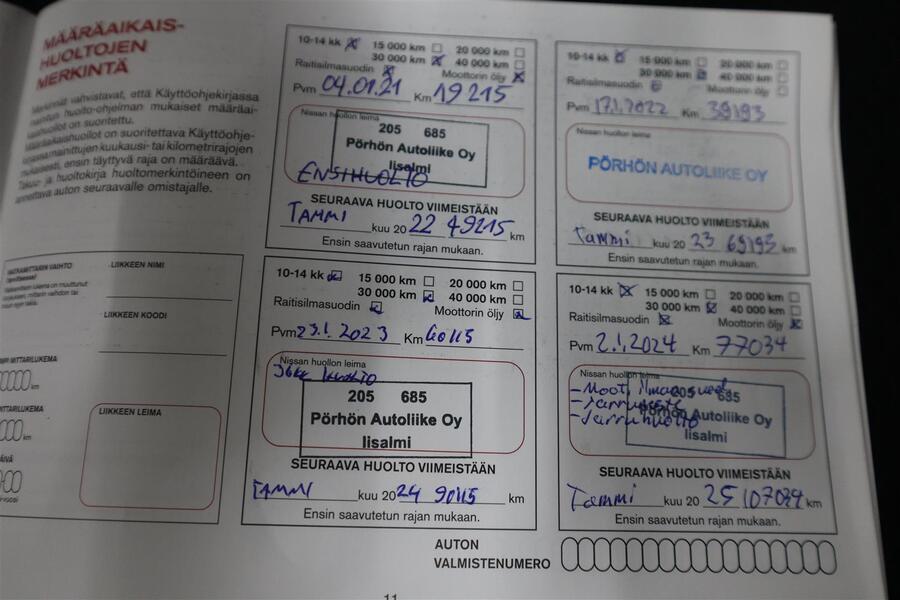 MÄÄRÄAIKAIS-
HUOLTOJEN
MERKINTÄ
Merkinnät vahvistavat, että Käyttöohjekirjassa
mainitun huolto-ohjelman mukaiset määräai-
kaishuollot on suoritettu.
Määräaikaishuollot on suoritettava Käyttöohje-
kirjassa mainittujen kuukausi- tai kilometrirajojen
mukaisesti, ensin täyttyvä raja on määräävä.
Takuu- ja huoltokirja huoltomerkintöineen on
annettava auton seuraavalle omistajalle.
MATKAMITTARIN VAIHTO
LIIKKEEN NIMI
LIIKKEEN KOODI
MITTARILUKEMA
km
MITTARILUKEMA
km
LIIKKEEN LEIMA
10-14 kk 15 000 km 20 000 km
30 000 km 40 000 km
Raitisilmasuodin Moottorin öljy
Pvm 04.01.21 Km 19215
Nissan huollon leima
205 685
Pörhön Autoliike Oy
Iisalmi
ENSIHUOLTO
SEURAAVA HUOLTO VIIMEISTÄÄN
TAMMI kuu 20 22 49215 km
Ensin saavutetun rajan mukaan.
10-14 kk 15 000 km 20 000 km
30 000 km 40 000 km
Raitisilmasuodin Moottorin öljy
Pvm 17.1.2022 Km 39193
Nissan huollon leima
PÖRHÖN AUTOLIIKE OY
SEURAAVA HUOLTO VIIMEISTÄÄN
Tammi kuu 20 23 69193 km
Ensin saavutetun rajan mukaan.
10-14 kk 15 000 km 20 000 km
30 000 km 40 000 km
Raitisilmasuodin Moottorin öljy
Pvm 23.1.2023 Km 60115
Nissan huollon leima
36kk huolto
205 685
Pörhön Autoliike Oy
Iisalmi
SEURAAVA HUOLTO VIIMEISTÄÄN
TAMMI kuu 20 24 90115 km
Ensin saavutetun rajan mukaan.
10-14 kk 15 000 km 20 000 km
30 000 km 40 000 km
Raitisilmasuodin Moottorin öljy
Pvm 2.1.2024 Km 77034
Nissan huollon leima
- Moot. ilmansuod
205 685
- Jarruneste
Pörhön Autoliike Oy
- Jarruhuolto
Iisalmi
SEURAAVA HUOLTO VIIMEISTÄÄN
Tammi kuu 20 25 107034 km
Ensin saavutetun rajan mukaan.
AUTON
VALMISTENUMERO
11